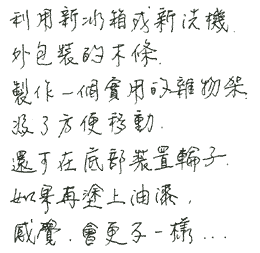 利用新冰箱或新洗機.
外包裝的木條.
製作一個實用的雜物架.
為了方便移動.
還可在底部裝置輪子.
如果再塗上油漆,
感覺.會更不一樣...